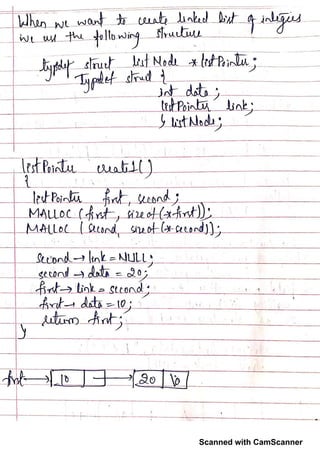 When we want to create linked list of integers
we use the following structure
typdef struct listNode *listPointer;
Typdef struct {
int data;
listPointer link;
} listNode;
listPointer create1()
{
listPointer first, second;
MALLOC (first, sizeof(*first));
MALLOC (second, sizeof(*second));
second → link = NULL;
second → data = 20;
first → link = second;
first → data = 10;
return first;
}
first → 10 → 20 \0
Scanned with CamScanner